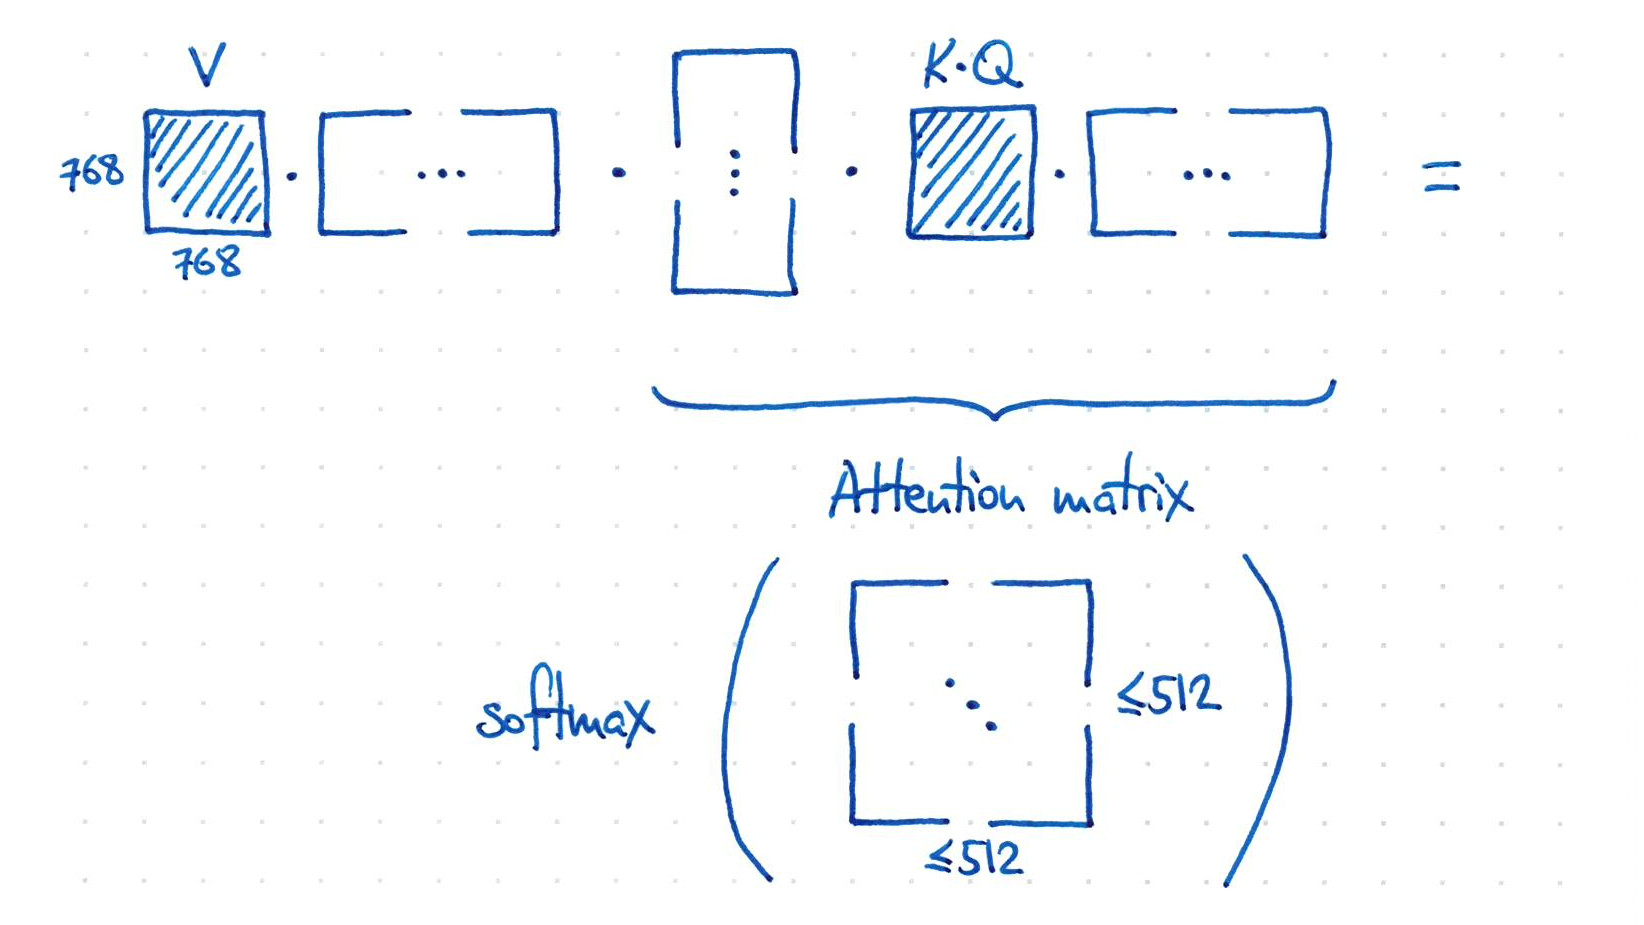 V
K·Q
768
=
768
Attention matrix
softmax
≤512
≤512